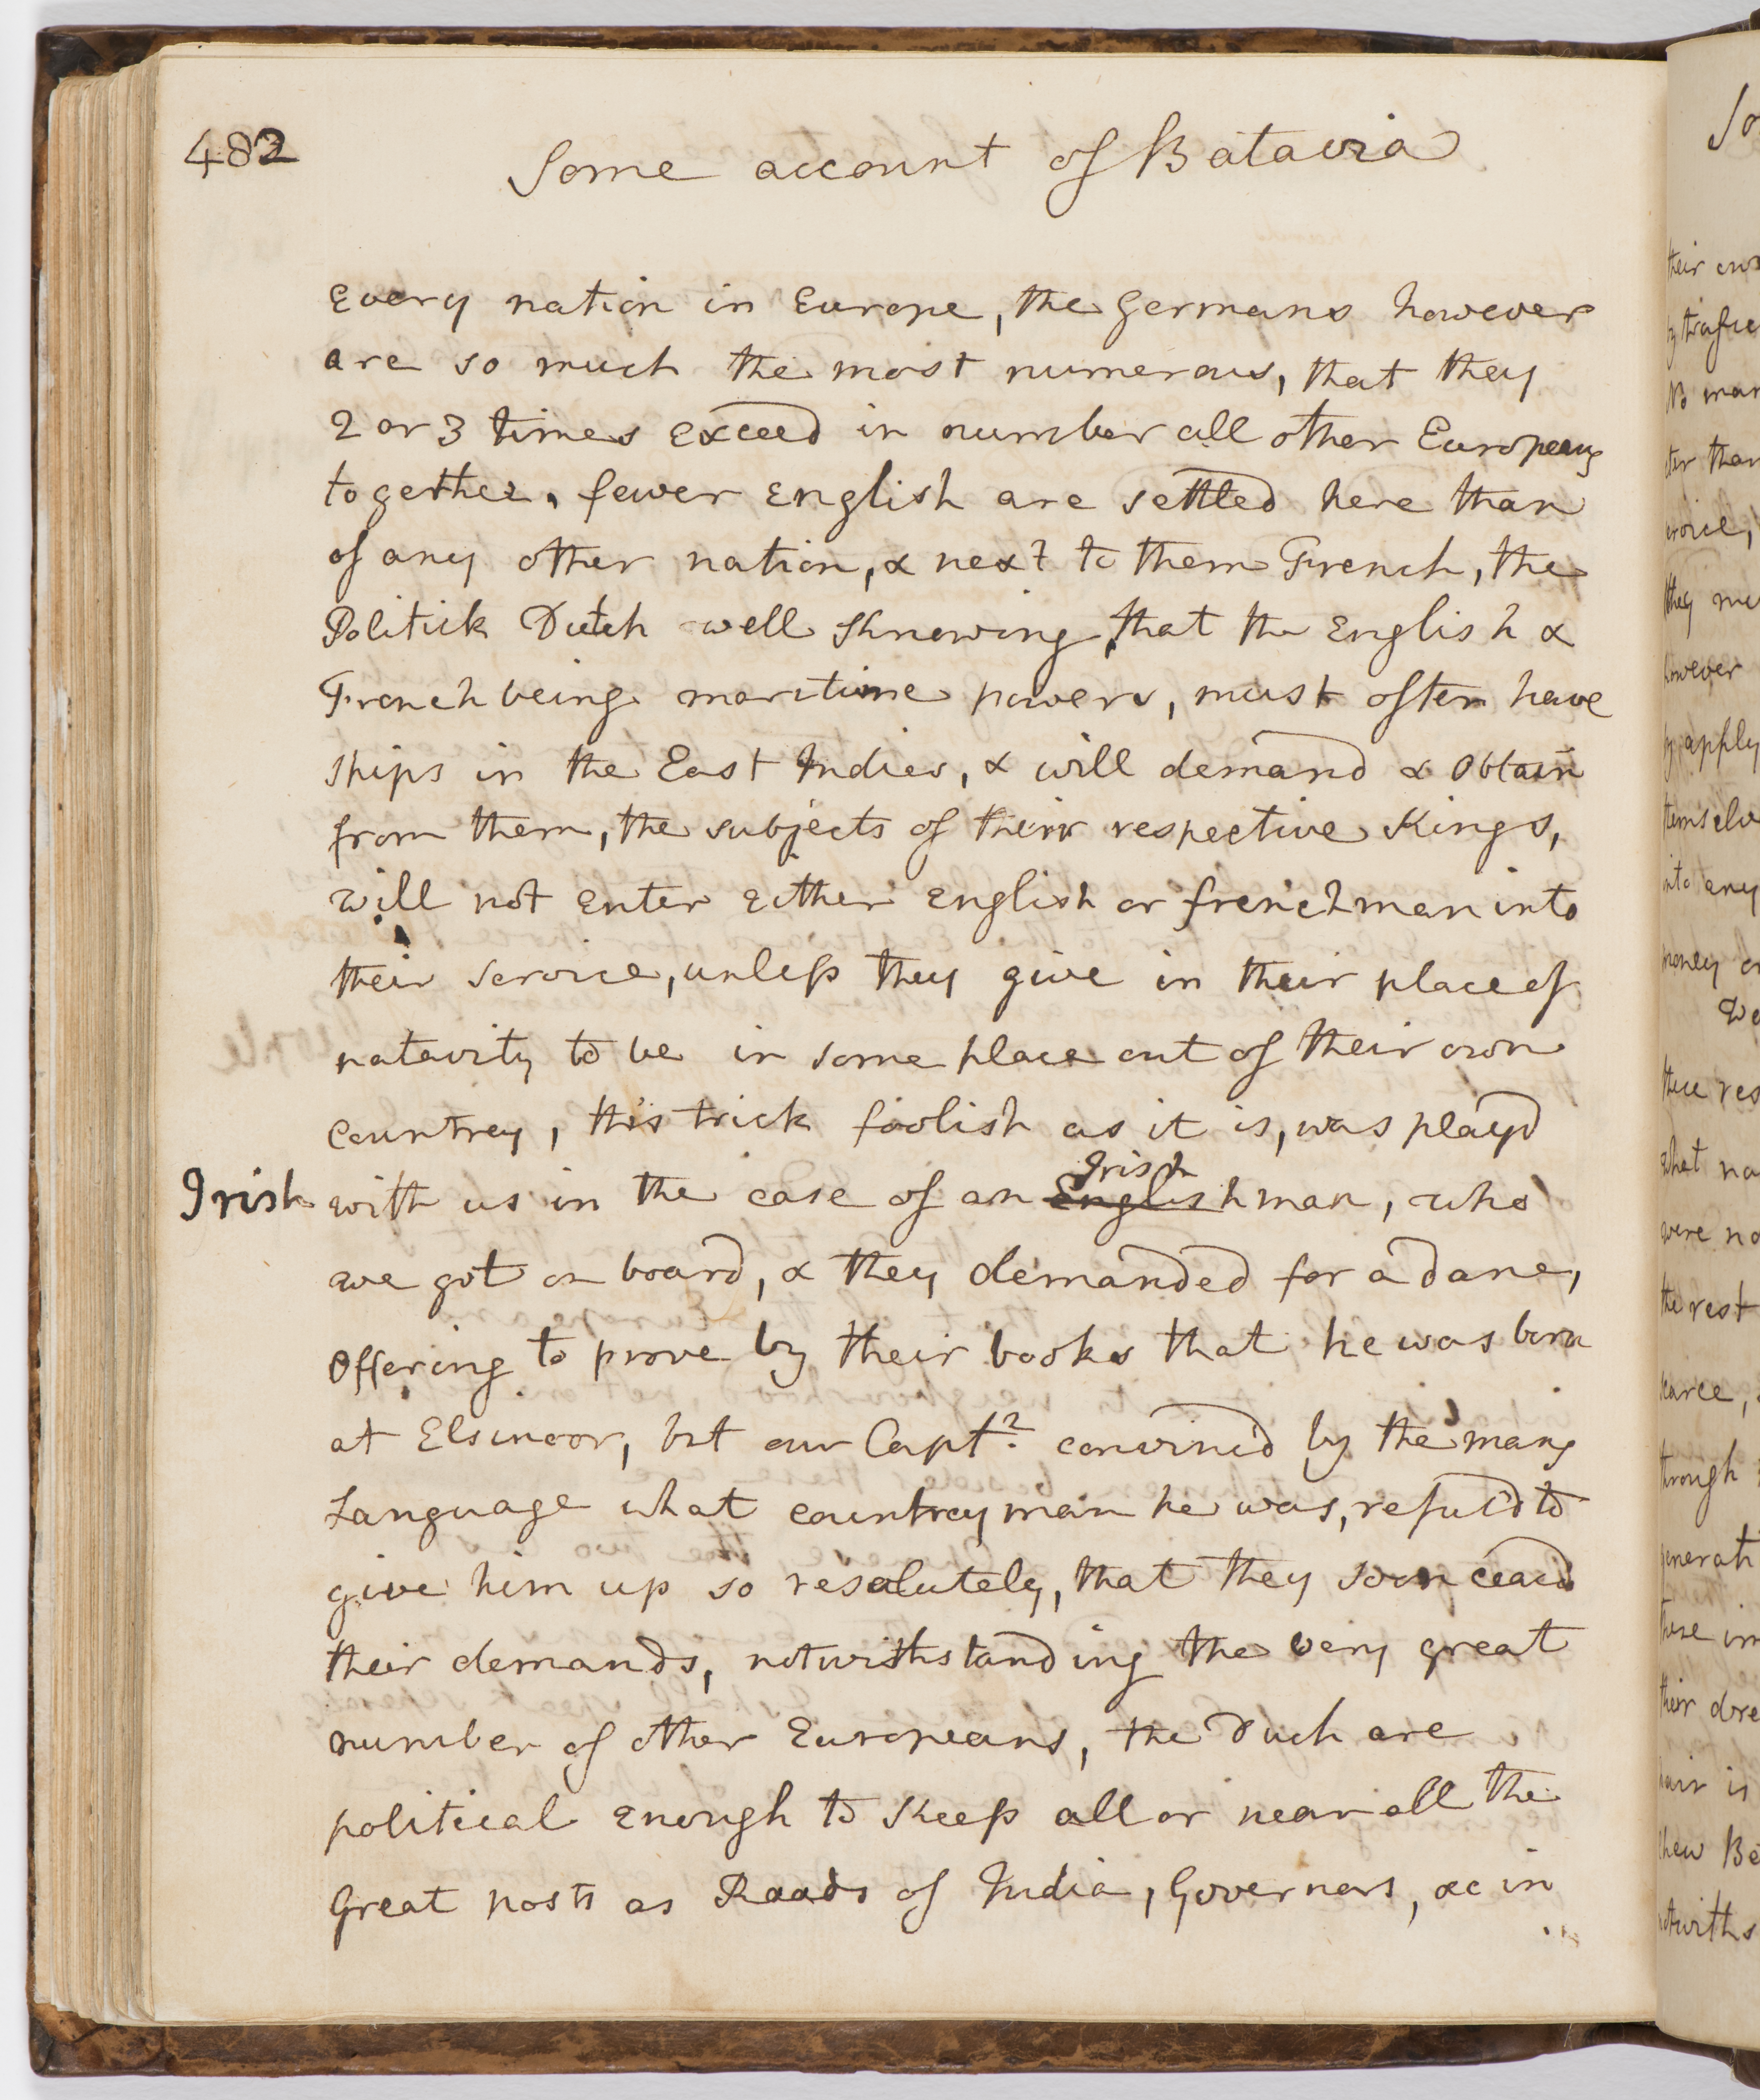 482
Some account of Batavia
every nation in Europe, the Germans however
are so much the most numerous, that they
2 or 3 times exceed in number all other Europeans
together. fewer English are settled here than
of any other nation, & next to them French, the
Politick Dutch well knowing, that the English &
French being maritime powers, must often have
ships in the East Indies, & will demand & obtain
from them, the subjects of their respective Kings,
will not enter either English or frenchman into
their service, unless they give in their place of
nativity to be in some place out of their own
countrey, this trick foolish as it is, was playd
Irish
Irish
with us in the case of an Englishman, who
we got on board, & they demanded for a dane,
offering to prove by their books that he was born
at Elsinoor, but our Capt. convinc'd by the mans
Language what countrey man he was, refus'd to
give him up so resolutely, that they soon ceas'd
their demands, notwithstanding the very great
number of other Europeans, the Duch are
political enough to keep all or near all the
Great posts as Raads of India, Governors, &c in
So
their own
man
ter than
they
however
apply
themselv
into any
money
We
these res
what na
were no
the rest
scarce,
through
generat
these im
their dre
hair is